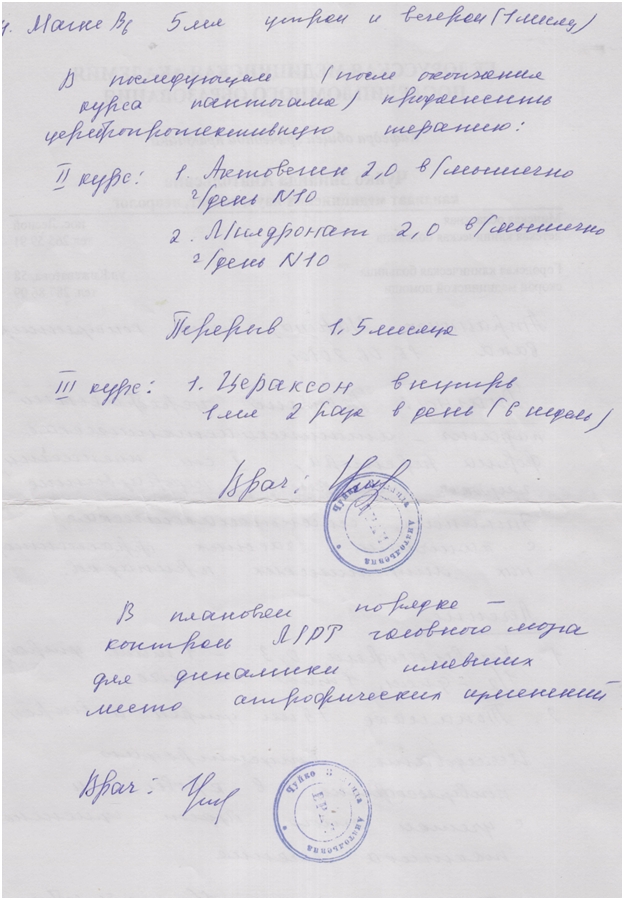 4. Магне В6 5мл утром и вечером (1 месяц)
В последующем (после окончания
курса пантогама) продолжить
церебропротективную терапию:
II курс: 1. Актовегин 2,0 в/мышечно
ч/день N10
2. Милдронат 2,0 в/мышечно
ч/день N10
Перерыв 1,5 месяца
III курс: 1. Цераксон внутрь
1 мл 2 раза в день (6 недель)
Врач:
Чуйко Анатольевна
В плановом порядке –
контроль МРТ головного мозга
для динамики имевших
место атрофических изменений
Врач:
Чуйко Анатольевна